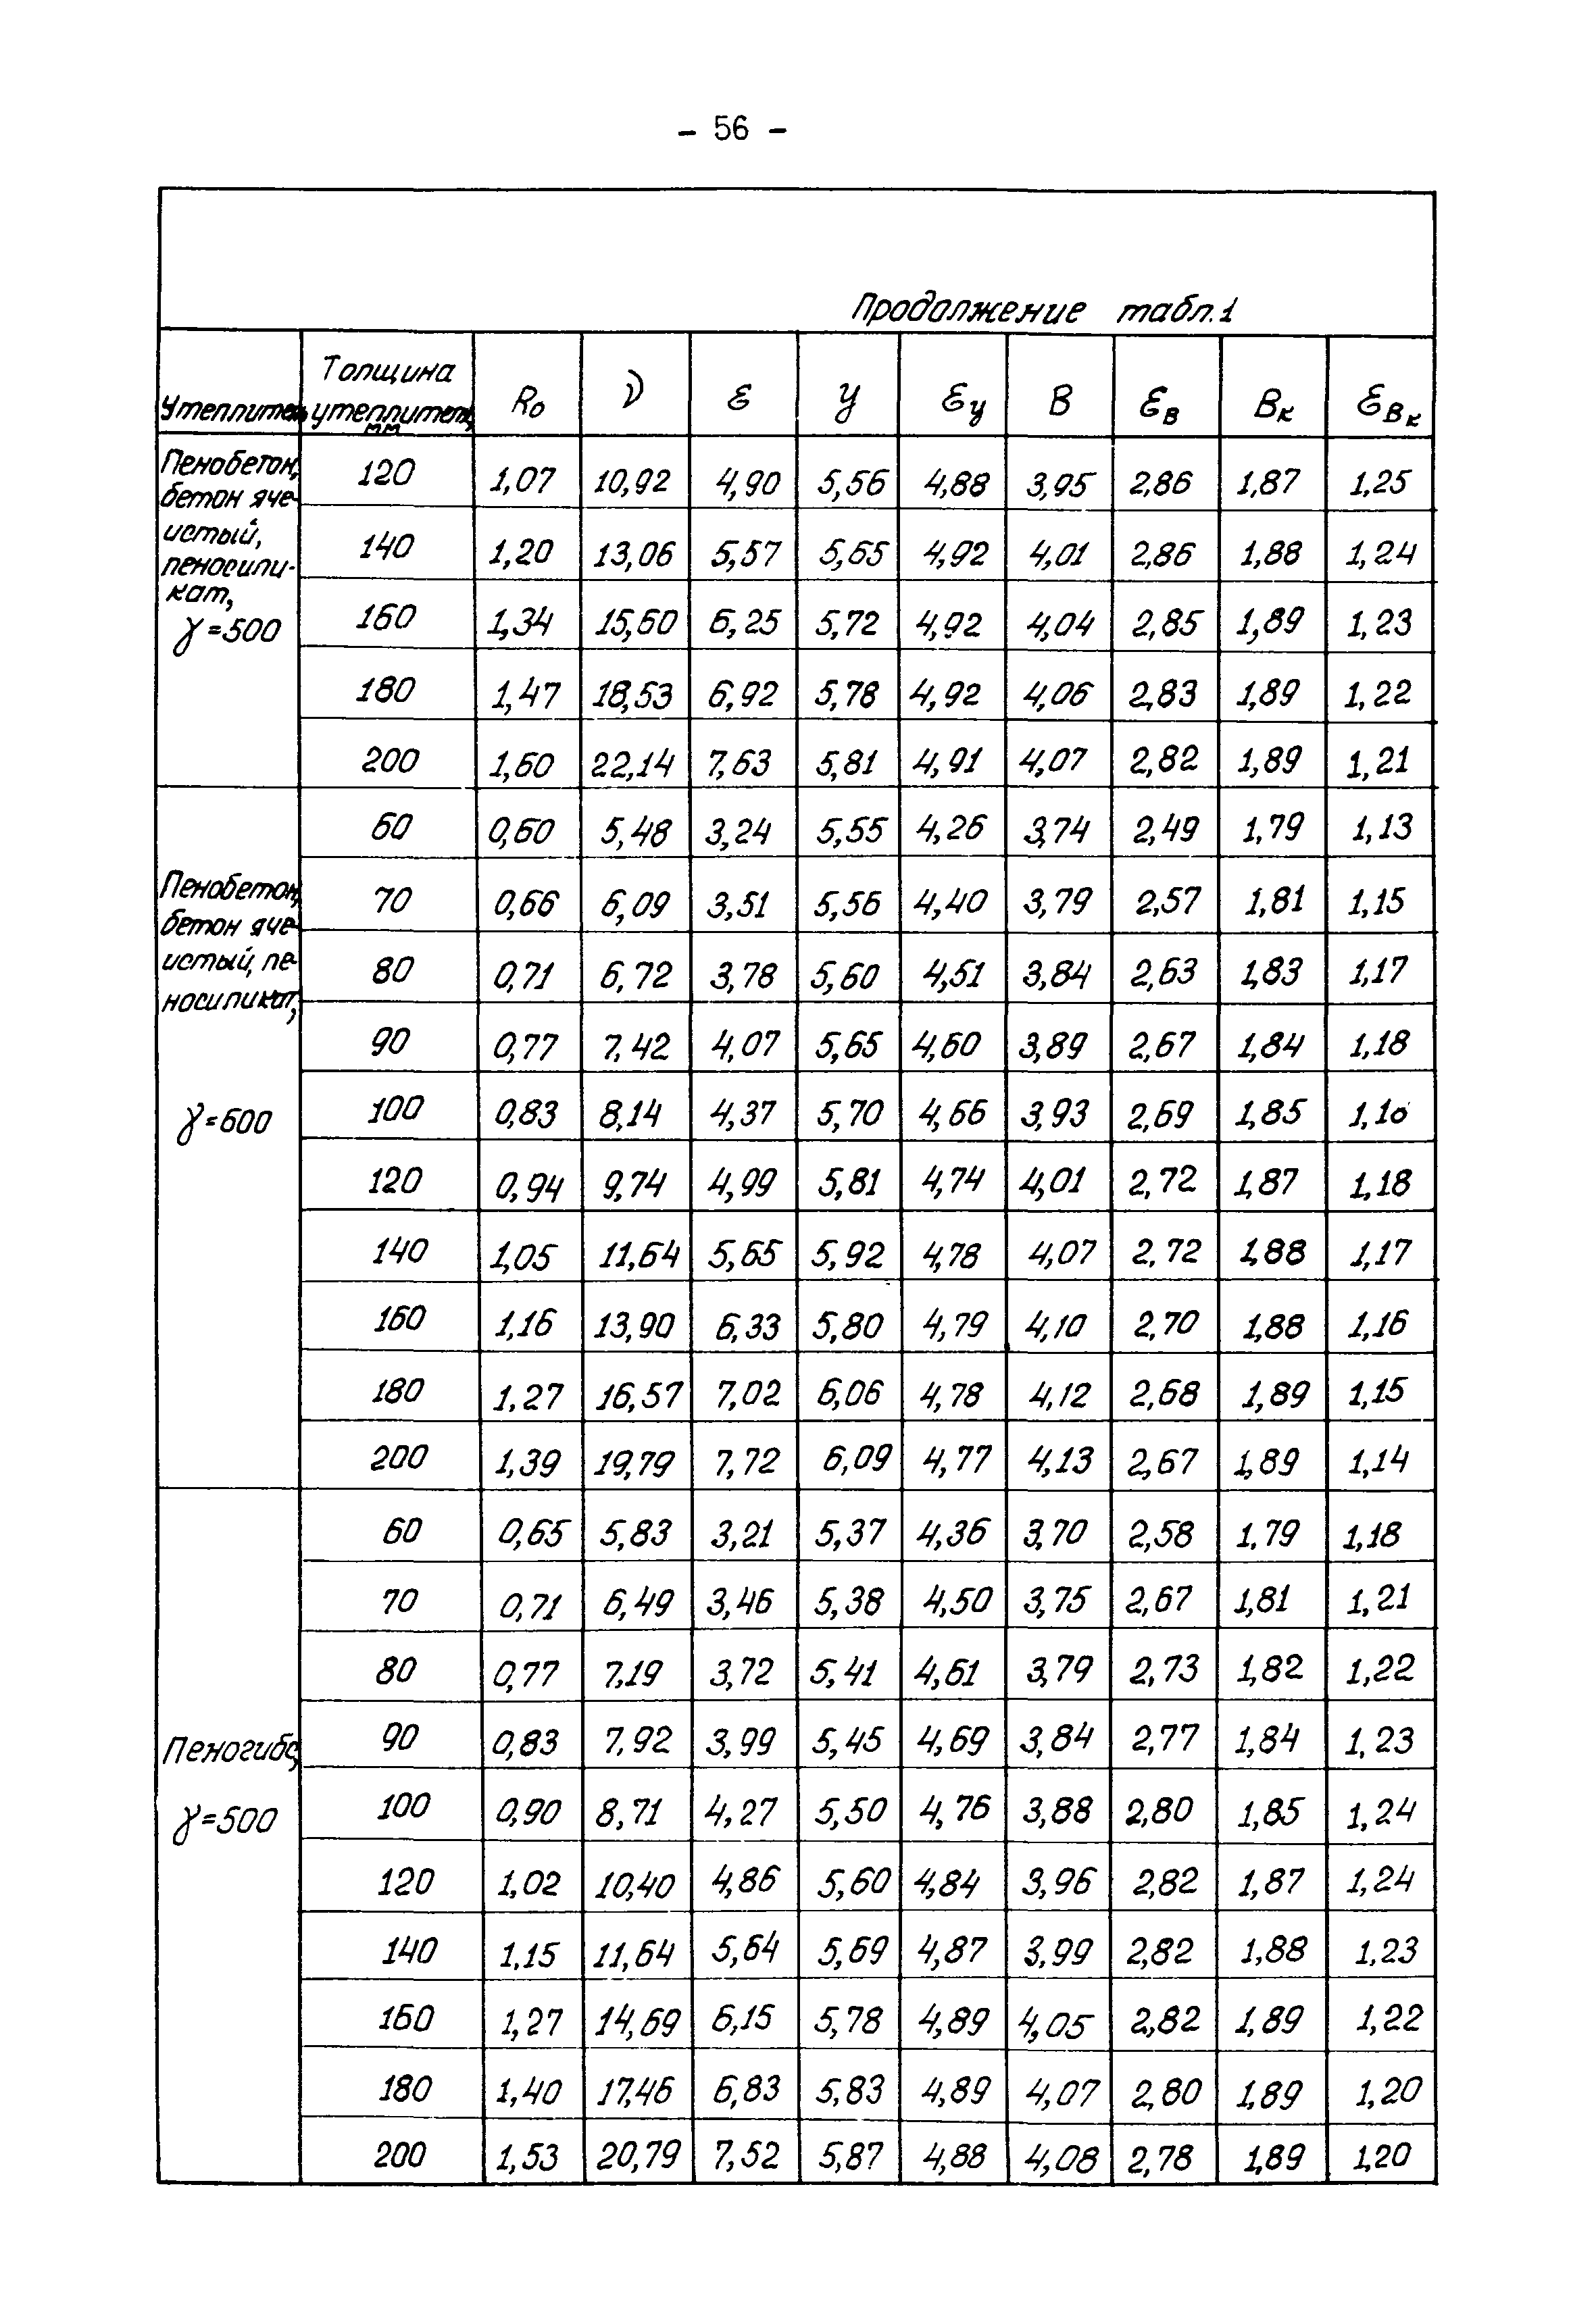 - 56 -
Продолжение табл. 1
Утеплитель Толщина утеплителя, мм R₀ ν ε У ε_у В ε_В В_к ε_Вк
Пенобетон, бетон ячеистый, пеносиликат, γ=500
120 1,07 10,92 4,90 5,56 4,88 3,95 2,86 1,87 1,25
140 1,20 13,06 5,57 5,65 4,92 4,01 2,86 1,88 1,24
160 1,34 15,60 6,25 5,72 4,92 4,04 2,85 1,89 1,23
180 1,47 18,53 6,92 5,78 4,92 4,06 2,83 1,89 1,22
200 1,60 22,14 7,63 5,81 4,91 4,07 2,82 1,89 1,21
Пенобетон, бетон ячеистый, пеносиликат, γ=600
60 0,60 5,48 3,24 5,55 4,26 3,74 2,49 1,79 1,13
70 0,66 6,09 3,51 5,56 4,40 3,79 2,57 1,81 1,15
80 0,71 6,72 3,78 5,60 4,51 3,84 2,63 1,83 1,17
90 0,77 7,42 4,07 5,65 4,60 3,89 2,67 1,84 1,18
100 0,83 8,14 4,37 5,70 4,66 3,93 2,69 1,85
120 0,94 9,74 4,99 5,81 4,74 4,01 2,72 1,87 1,18
140 1,05 11,64 5,65 5,92 4,78 4,07 2,72 1,88 1,17
160 1,16 13,90 6,33 5,80 4,79 4,10 2,70 1,88 1,16
180 1,27 16,57 7,02 6,06 4,78 4,12 2,68 1,89 1,15
200 1,39 19,79 7,72 6,09 4,77 4,13 2,67 1,89 1,14
Пеногибс, γ=500
60 0,65 5,83 3,21 5,37 4,36 3,70 2,58 1,79 1,18
70 0,71 6,49 3,46 5,38 4,50 3,75 2,67 1,81 1,21
80 0,77 7,19 3,72 5,41 4,61 3,79 2,73 1,82 1,22
90 0,83 7,92 3,99 5,45 4,69 3,84 2,77 1,84 1,23
100 0,90 8,71 4,27 5,50 4,76 3,88 2,80 1,85 1,24
120 1,02 10,40 4,86 5,60 4,84 3,96 2,82 1,87 1,24
140 1,15 11,64 5,64 5,69 4,87 3,99 2,82 1,88 1,23
160 1,27 14,69 6,15 5,78 4,89 4,05 2,82 1,89 1,22
180 1,40 17,46 6,83 5,83 4,89 4,07 2,80 1,89 1,20
200 1,53 20,79 7,52 5,87 4,88 4,08 2,78 1,89 1,20